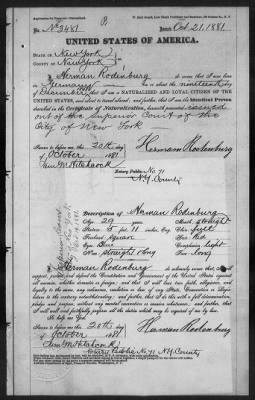 No 3481
Issued Oct. 21, 1881
UNITED STATES OF AMERICA.
STATE OF New York
COUNTY OF New York
I, Herman Rodenburg do swear that I was born
in Germany on or about the nineteenth day
of December, that I am a NATURALIZED AND LOYAL CITIZEN OF THE
UNITED STATES, and about to travel abroad; and further, that I am the Identical Person
described in the Certificate of Naturalization, herewith presented
out of the Superior Court of the
City of New York
Sworn to before me, this 20th day
of October 1881
Herman Rodenburg
Sam. M. Hitchcock
Notary Public No 71
N.Y. County
Description of Herman Rodenburg
Age: 29 years
Mouth: straight
Stature: 5 feet 11 inches
Forehead: square
Eyes: Blue
Complexion: light
Nose: straight & long
Face: long
I, Herman Rodenburg do solemnly swear that I will
support, protect and defend the Constitution and Government of the United States against
all enemies, whether domestic or foreign; and that I will bear true faith, allegiance, and
loyalty to the same, any ordinance, resolution or law of any State, Convention or Legislature
to the contrary notwithstanding; and further, that I do this with a full determination,
pledge and purpose, without any mental reservation or evasion whatsoever; and further, that
I will well and faithfully perform all the duties which may be required of me by law.
So help me God.
Sworn to before me, this 20th day
of October 1881
Herman Rodenburg
Sam M Hitchcock
Notary Public No 71 N.Y. County